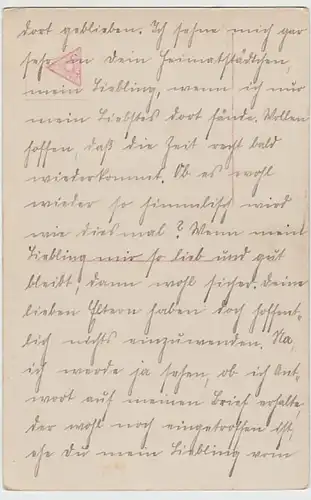 dort geblieben. Ich sehne mich gar
sehr in dein Heimatstädtchen,
mein Liebling, wenn ich nur
mein Liebstes dort fände. Wollen
hoffen, daß die Zeit recht bald
wiederkommt. Ob es wohl
wieder so himmlisch wird
wie diesmal? Wenn mein
Liebling mir so lieb und gut
bleibt, dann wohl sicher. Deine
lieben Eltern haben doch hoffent-
lich nichts einzuwenden. Na,
ich werde ja sehen, ob ich Ant-
wort auf meinen Brief erhalte
der wohl noch eingetroffen ist,
ehe Du mein Liebling vom